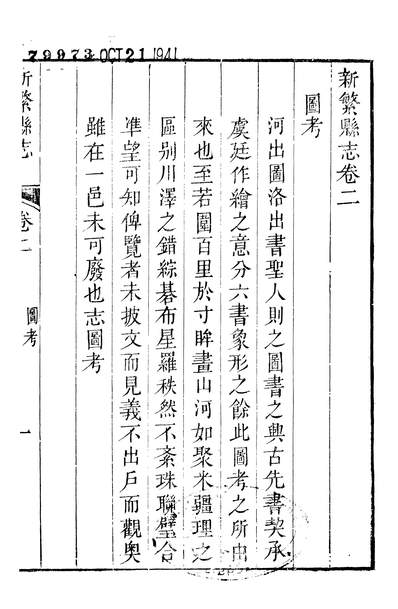 79973 OCT 21 1941
新繁縣志卷二
圖考
河出圖洛出書聖人則之圖書之興古先書契承
虞廷作繪之意分六書象形之餘此圖考之所由
來也至若圖百里於寸眸畫山河如聚米疆理之
區別川澤之錯綜碁布星羅秩然不紊珠聯璧合
凖望可知俾覽者未披文而見義不出戶而觀奧
雖在一邑未可廢也志圖考
新繁縣志
卷二
圖考
一